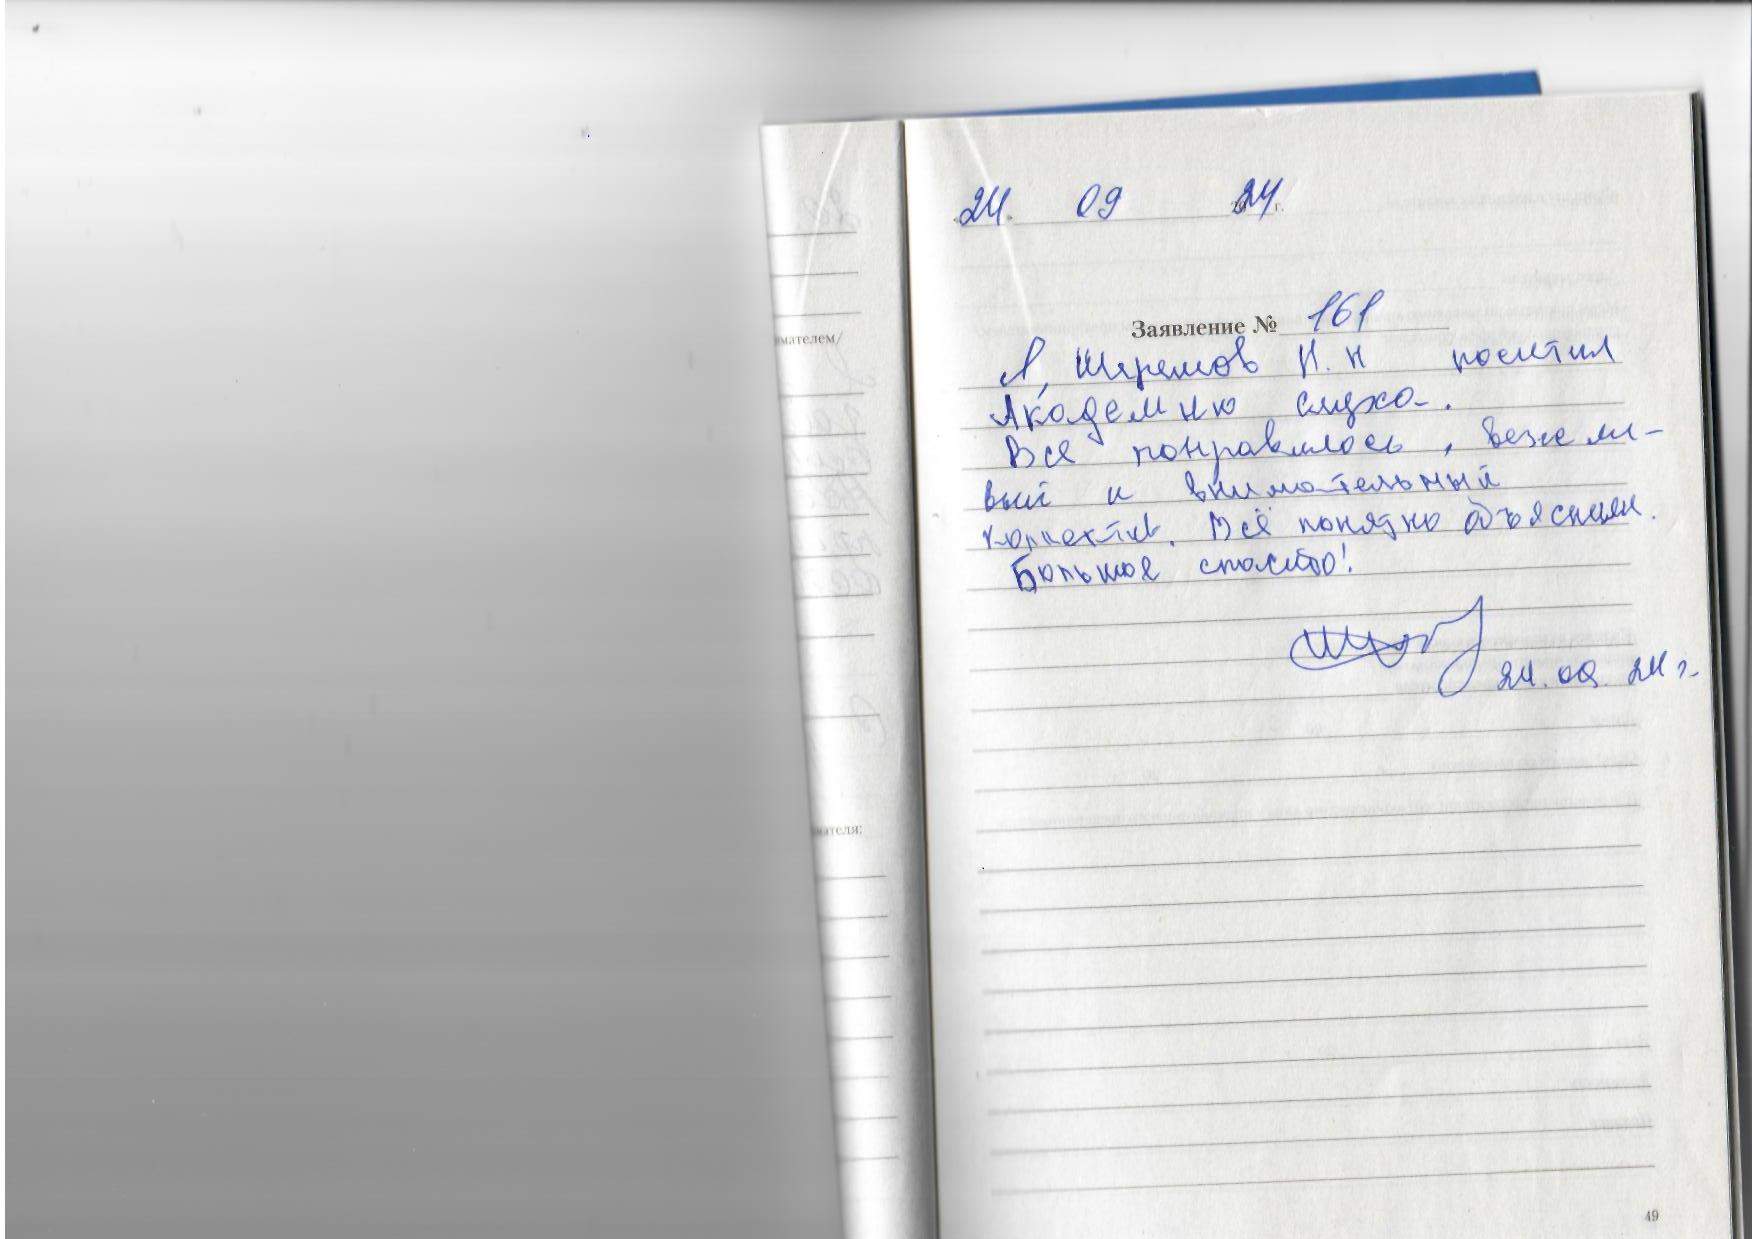 мателем/
мателя:
«24» 09 2024 г.
Заявление № 161
Я, И. Н посетил
Академию слуха.
Всё понравилось, вежли-
вый и внимательный
коллектив. Всё понятно
Большое спасибо!
24. 09. 24 г.
49